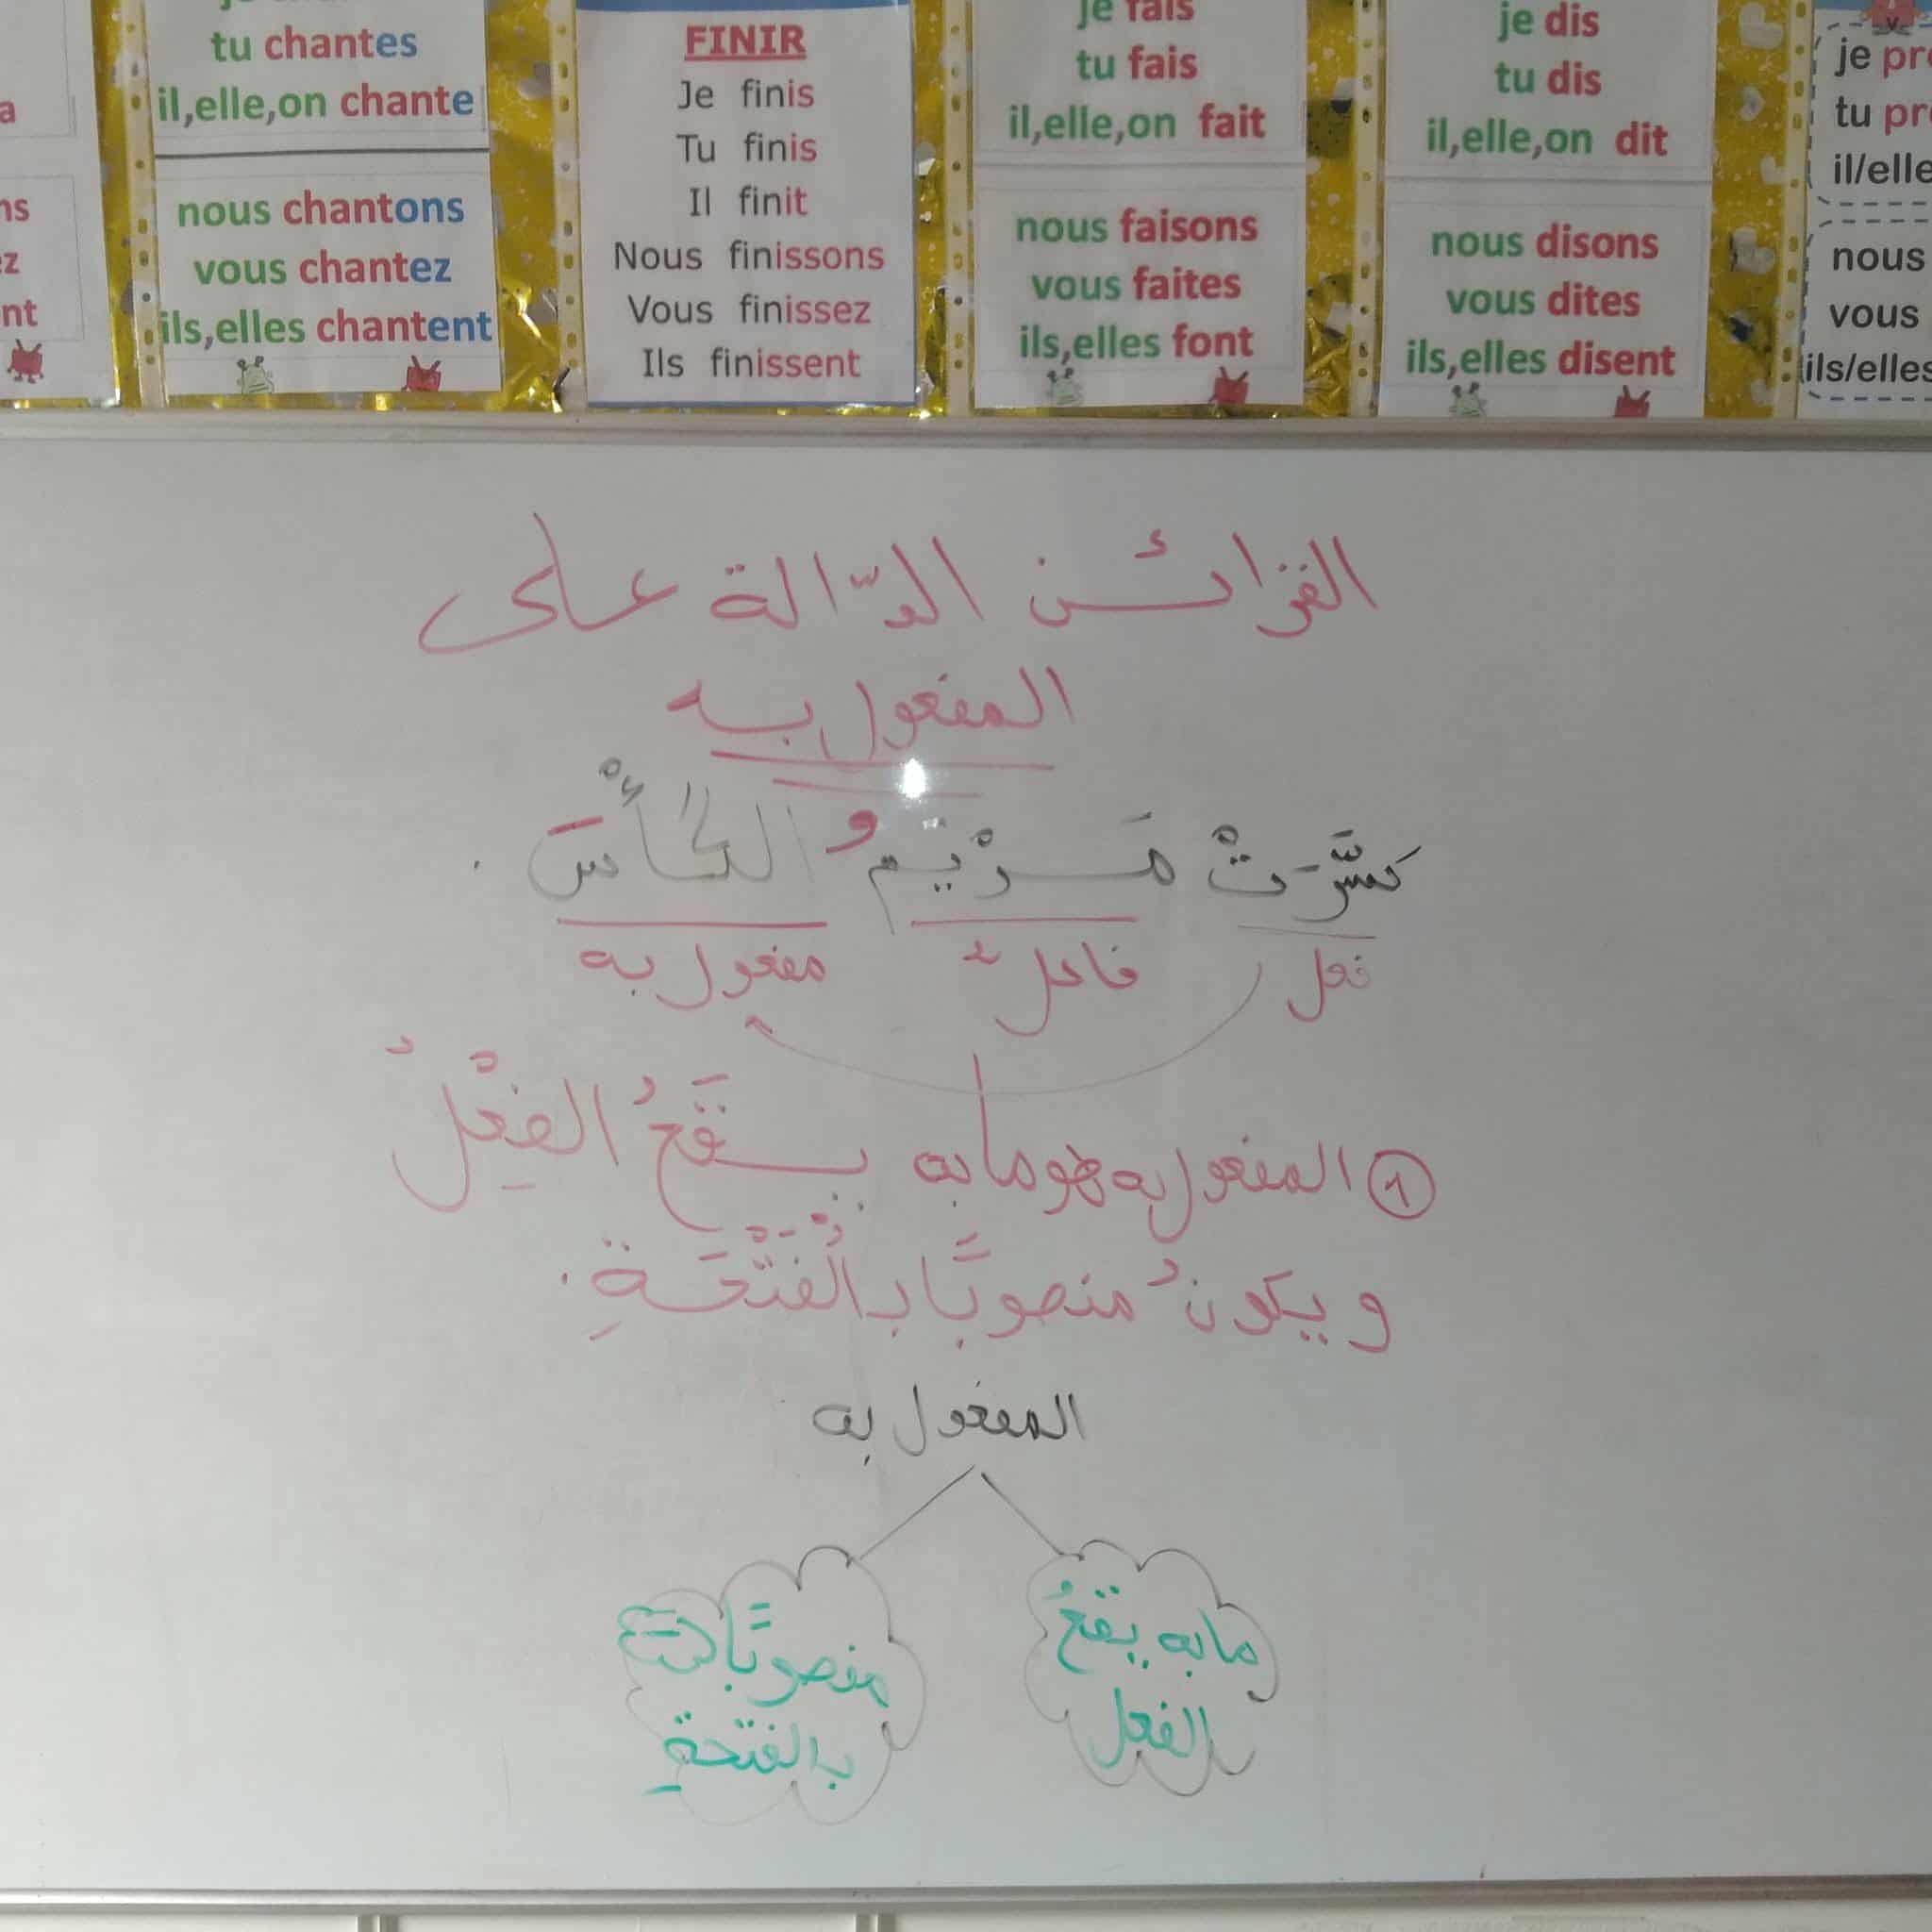 tu chantes
il,elle,on chante
nous chantons
vous chantez
ils,elles chantent
FINIR
Je finis
Tu finis
Il finit
Nous finissons
Vous finissez
Ils finissent
je fais
tu fais
il,elle,on fait
nous faisons
vous faites
ils,elles font
je dis
tu dis
il,elle,on dit
nous disons
vous dites
ils,elles disent
je
tu
il/elle
nous
vous
ils/elles
القرائن الدّالة على
المفعول به
كسَّرَتْ مَرْيَمُ الكَأْسَ .
فعل فاعل مفعول به
① المفعول به هو ما به يَقَعُ الفِعْلُ
و يكونُ منصوبًا بالْفَتْحَةِ .
المفعول به
ما به يقعُ
الفعل
منصوبًا
بالفتحةِ